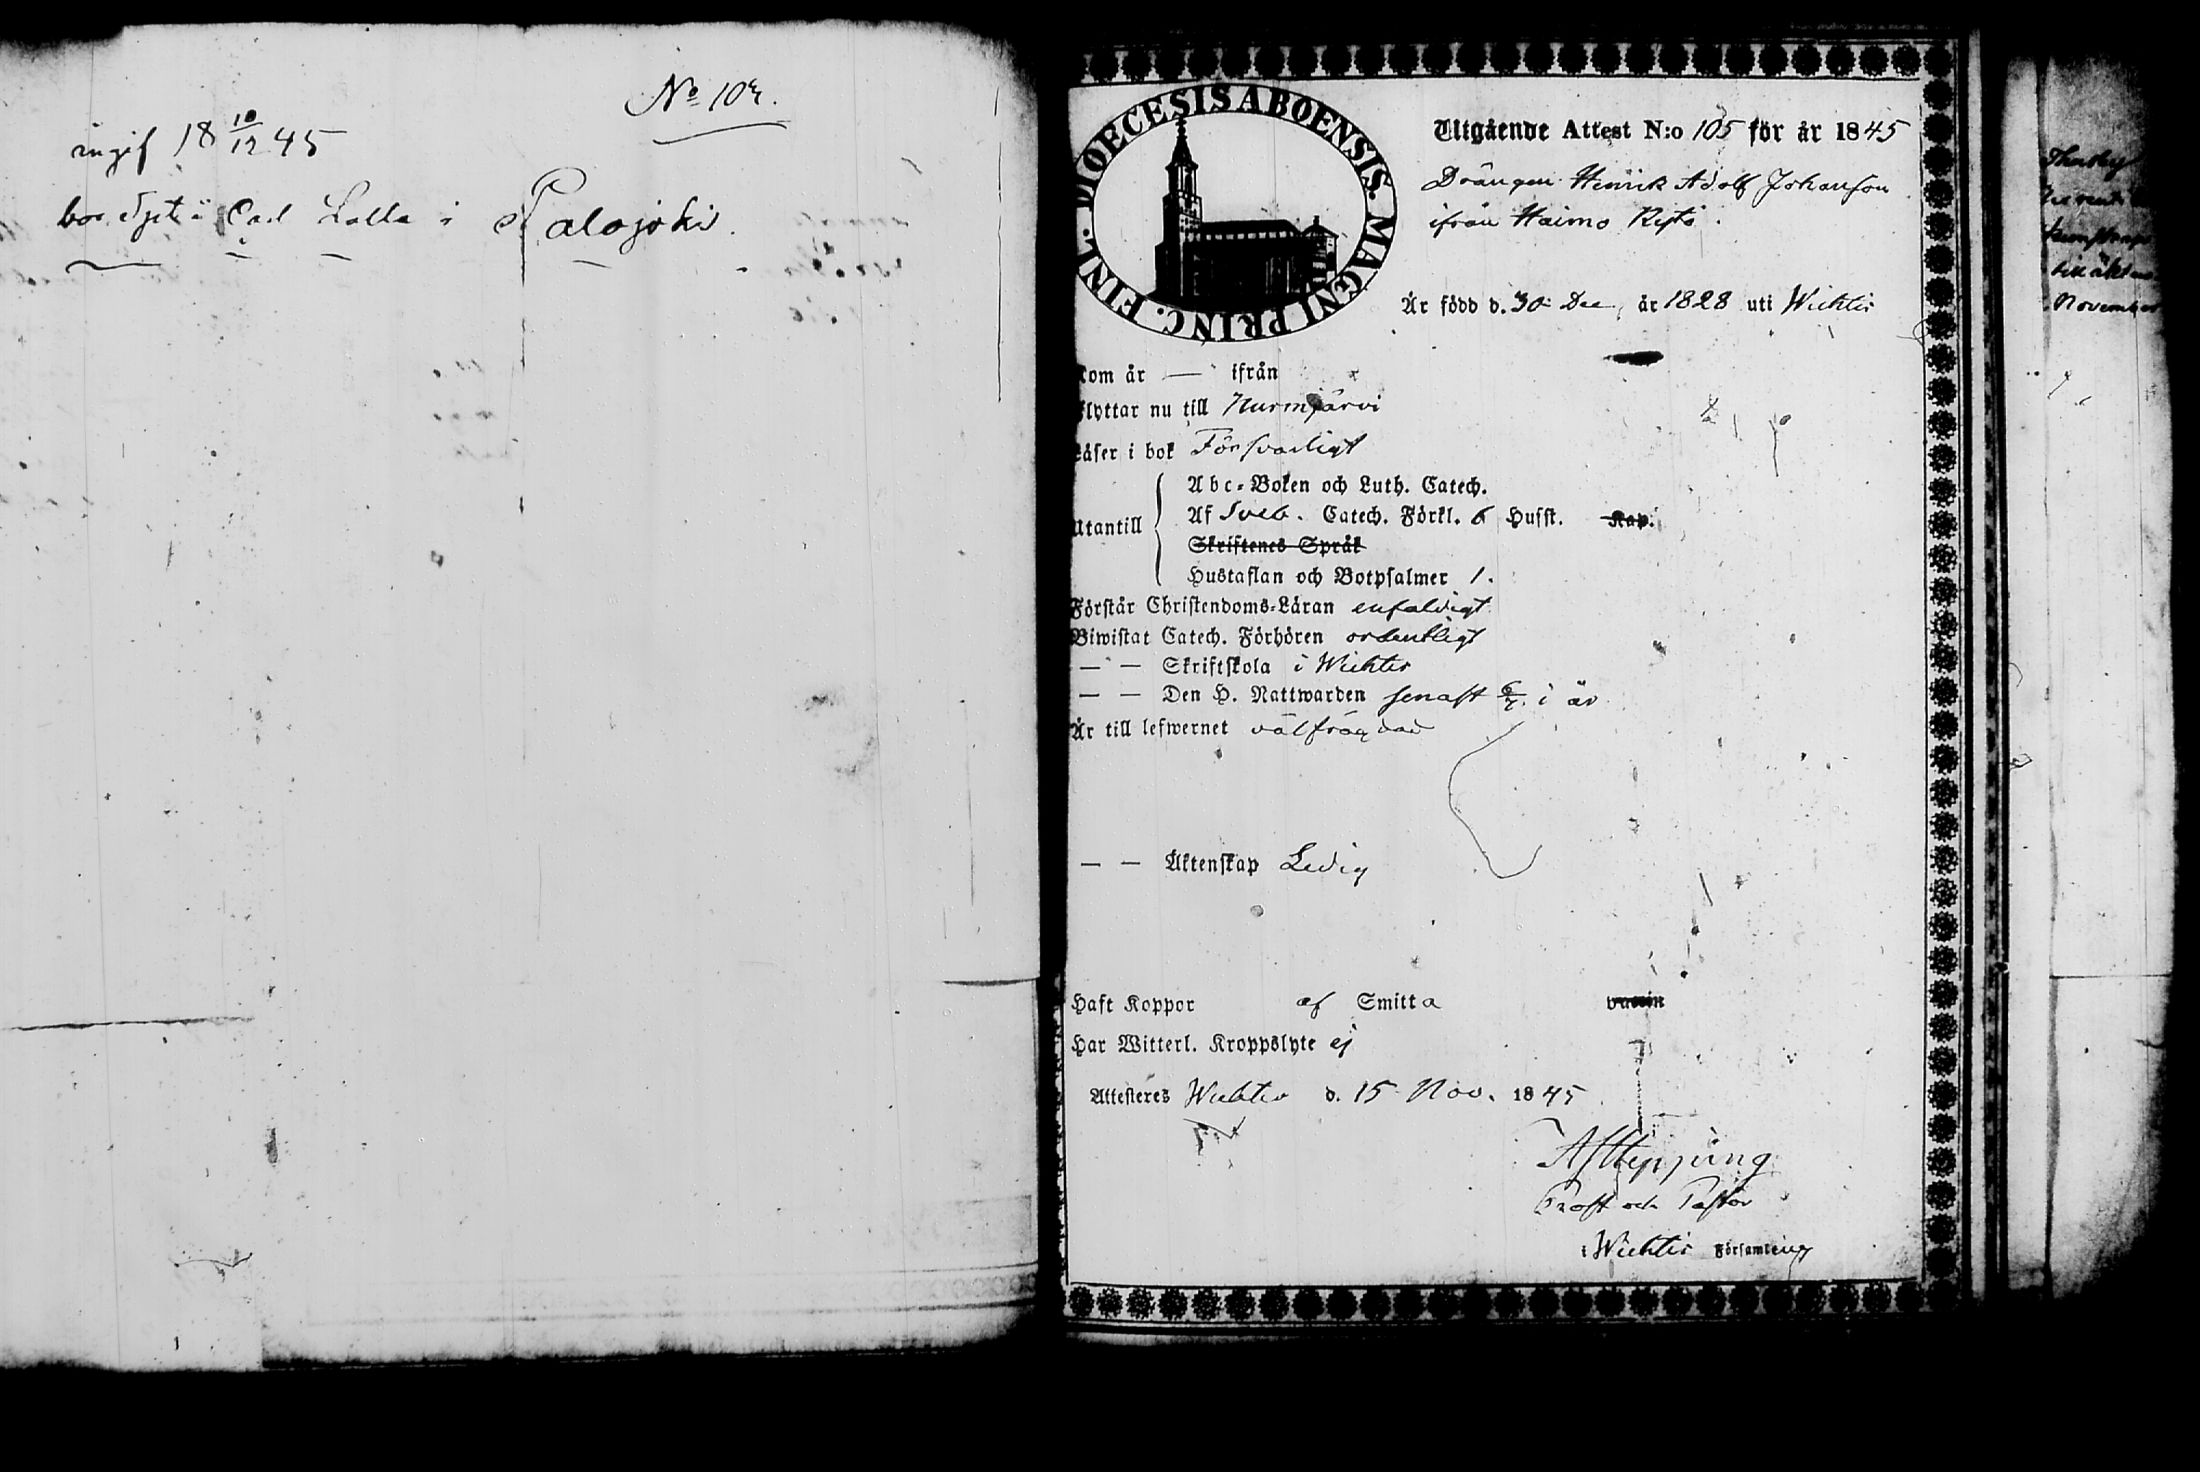 No 104.
ingif 18 10/12 45
hos Carl Lalla i Palojoki.
DIOECESIS ABOENSIS. MAGNI PRINC. FINL.
Utgående Attest N:o 105 för år 1845
Drängen Henrik Adolf Johansson
ifrån Haimo Rystö.
Är född d. 30 Dec, år 1828 uti Wichtis
kom år — ifrån
flyttar nu till Nurmijärvi
Läser i bok Försvarligt
Utantill
Abc-Boken och Luth. Catech.
Af Sveb. Catech. Förkl. 6 Hufst. Kap.
Skriftenes Språk
Hustaflan och Botpsalmer 1.
Förstår Christendoms-Läran enfaldigt
Biwistat Catech. Förhören ordentligt
— — Skriftskola i Wichtis
— — Den H. Nattwarden senast 6/7 i år
Är till lefwernet välfrägdad
— — Äktenskap Ledig
Haft Koppor af Smitta vaccin
Har Witterl. Kroppslyte ej
Attesteras Wichtis d. 15 Nov. 1845
Prost och Pastor
i Wichtis Församling
till äkt
November